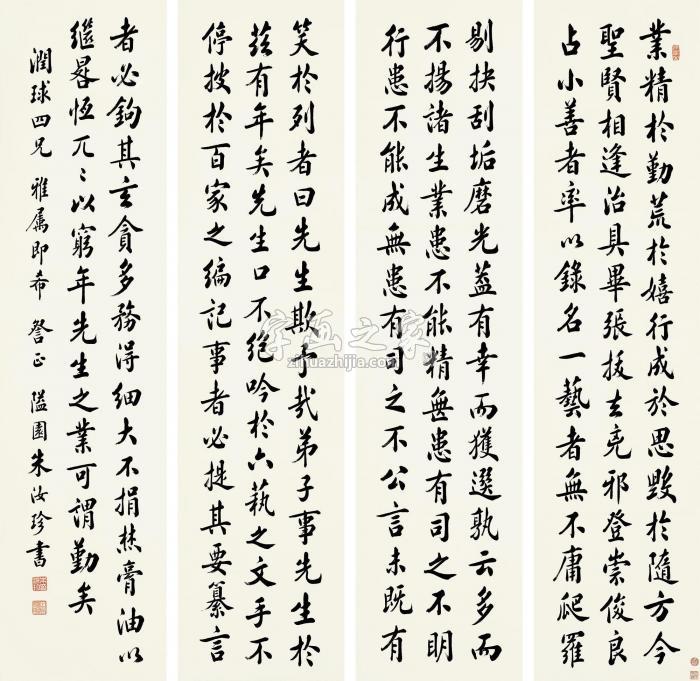 業精於勤荒於嬉行成於思毀於隨方今
聖賢相逢治具畢張拔去兇邪登崇俊良
占小善者率以錄名一藝者無不庸爬羅
剔抉刮垢磨光蓋有幸而獲選孰云多而
不揚諸生業患不能精無患有司之不明
行患不能成無患有司之不公言未既有
笑於列者曰先生欺予哉弟子事先生於
茲有年矣先生口不絕吟於六藝之文手不
停披於百家之編記事者必提其要纂言
者必鉤其玄貪多務得細大不捐焚膏油以
繼晷恆兀〻以窮年先生之業可謂勤矣
潤球四兄 雅屬即希 詧正 隘園朱汝珍書
字画之家
zihuazhijia.com